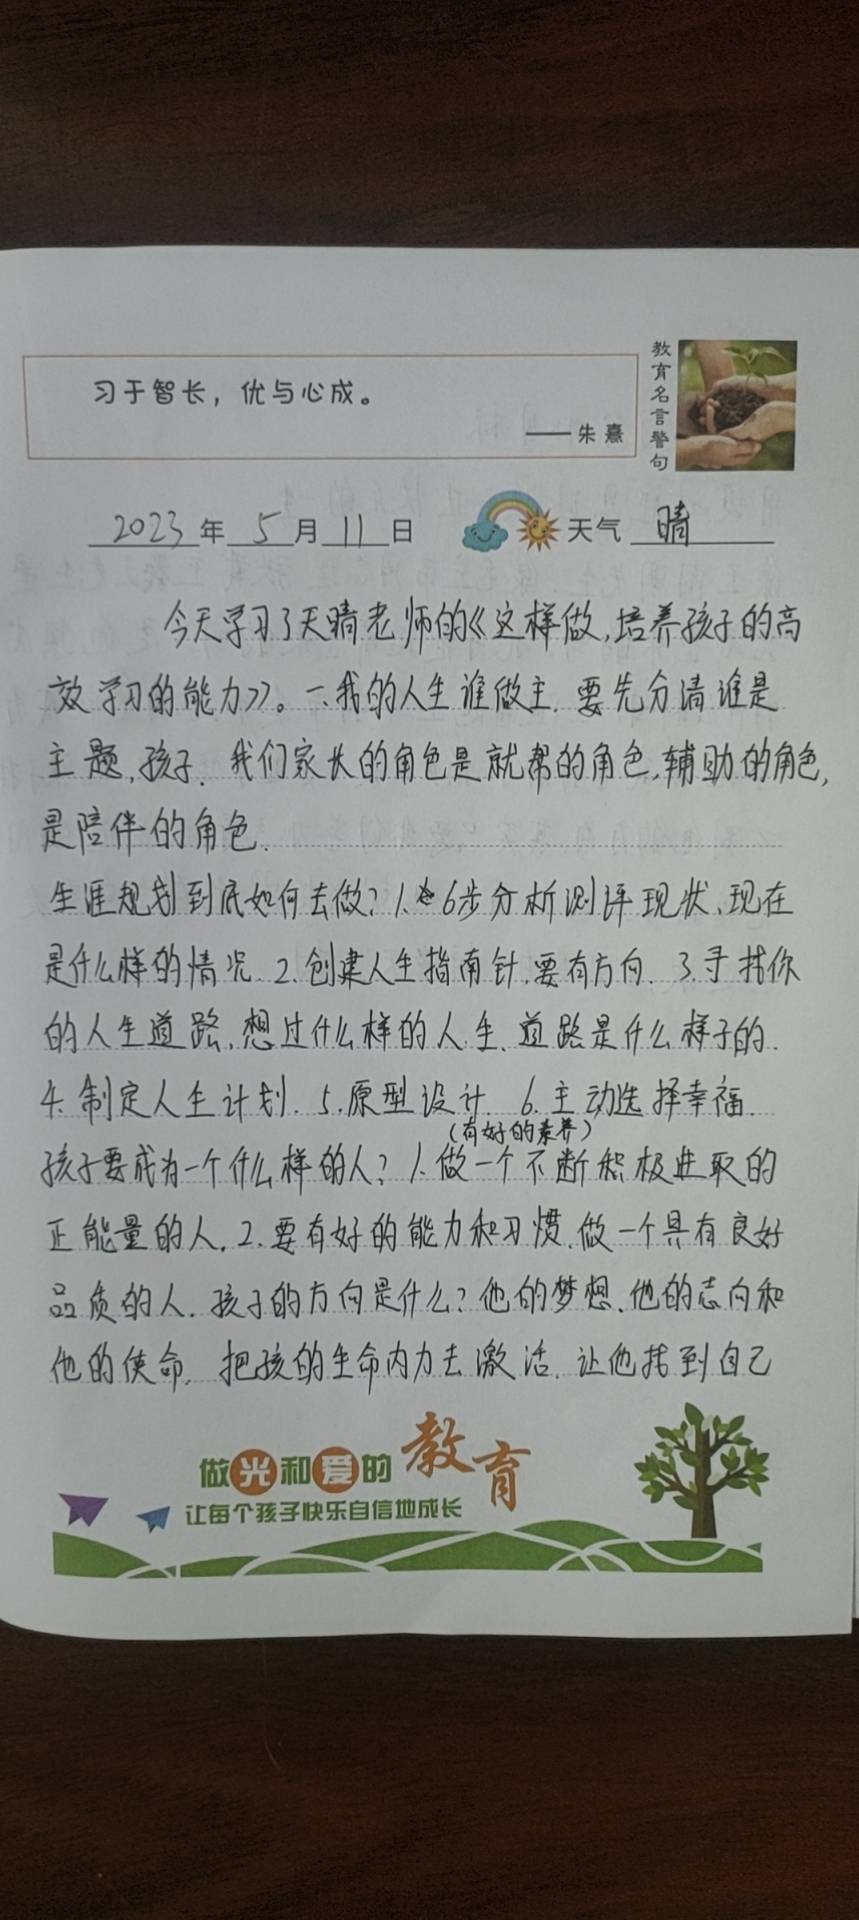 习于智长，优与心成。
——朱熹
教育名言警句
2023年5月11日 天气 晴
今天学习了天晴老师的《这样做,培养孩子的高
效学习的能力》。一、我的人生谁做主.要先分清谁是
主题,孩子.我们家长的角色是就帮的角色,辅助的角色,
是陪伴的角色.
生涯规划到底如何去做?1.6步分析测评现状、现在
是什么样的情况.2.创建人生指南针.要有方向.3.寻找你
的人生道路,想过什么样的人生、道路是什么样子的.
4.制定人生计划.5.原型设计.6.主动选择幸福.
(有好的素养)
孩子要成为一个什么样的人?1.做一个不断积极进取的
正能量的人.2.要有好的能力和习惯.做一个具有良好
品质的人.孩子的方向是什么?他的梦想、他的志向和
他的使命.把孩的生命内力去激活.让他找到自己
做光和爱的教育
让每个孩子快乐自信地成长